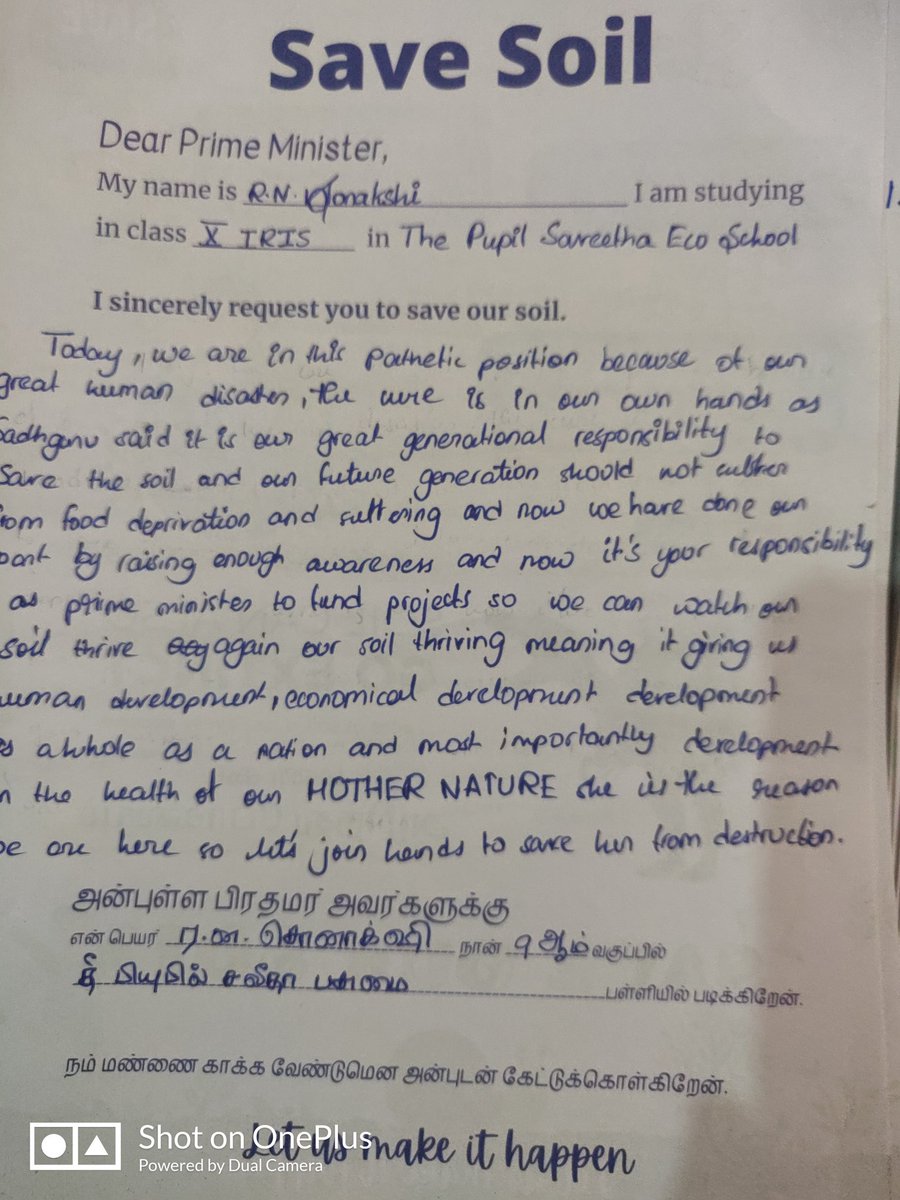 Save Soil
Dear Prime Minister,
My name is R.N. Sonakshi I am studying
in class X IRIS in The Pupil Saveetha Eco School
I sincerely request you to save our soil.
Today, we are in this pathetic position because of our
great human disaster, the cure is in our own hands as
sadhguru said it is our great generational responsibility to
save the soil and our future generation should not suffer
from food deprivation and suffering and now we have done our
part by raising enough awareness and now it's your responsibility
as prime minister to fund projects so we can watch our
soil thrive again our soil thriving meaning it giving us
human development, economical development development
as a whole as a nation and most importantly development
in the health of our MOTHER NATURE she is the reason
we are here so let's join hands to save her from destruction.
அன்புள்ள பிரதமர் அவர்களுக்கு
என் பெயர் ர.ன. சொனாக்ஷி நான் 9 ஆம் வகுப்பில்
தி பியுபில் சவீதா பசுமை பள்ளியில் படிக்கிறேன்.
நம் மண்ணை காக்க வேண்டுமென அன்புடன் கேட்டுக்கொள்கிறேன்.
Let us make it happen
Shot on OnePlus
Powered by Dual Camera